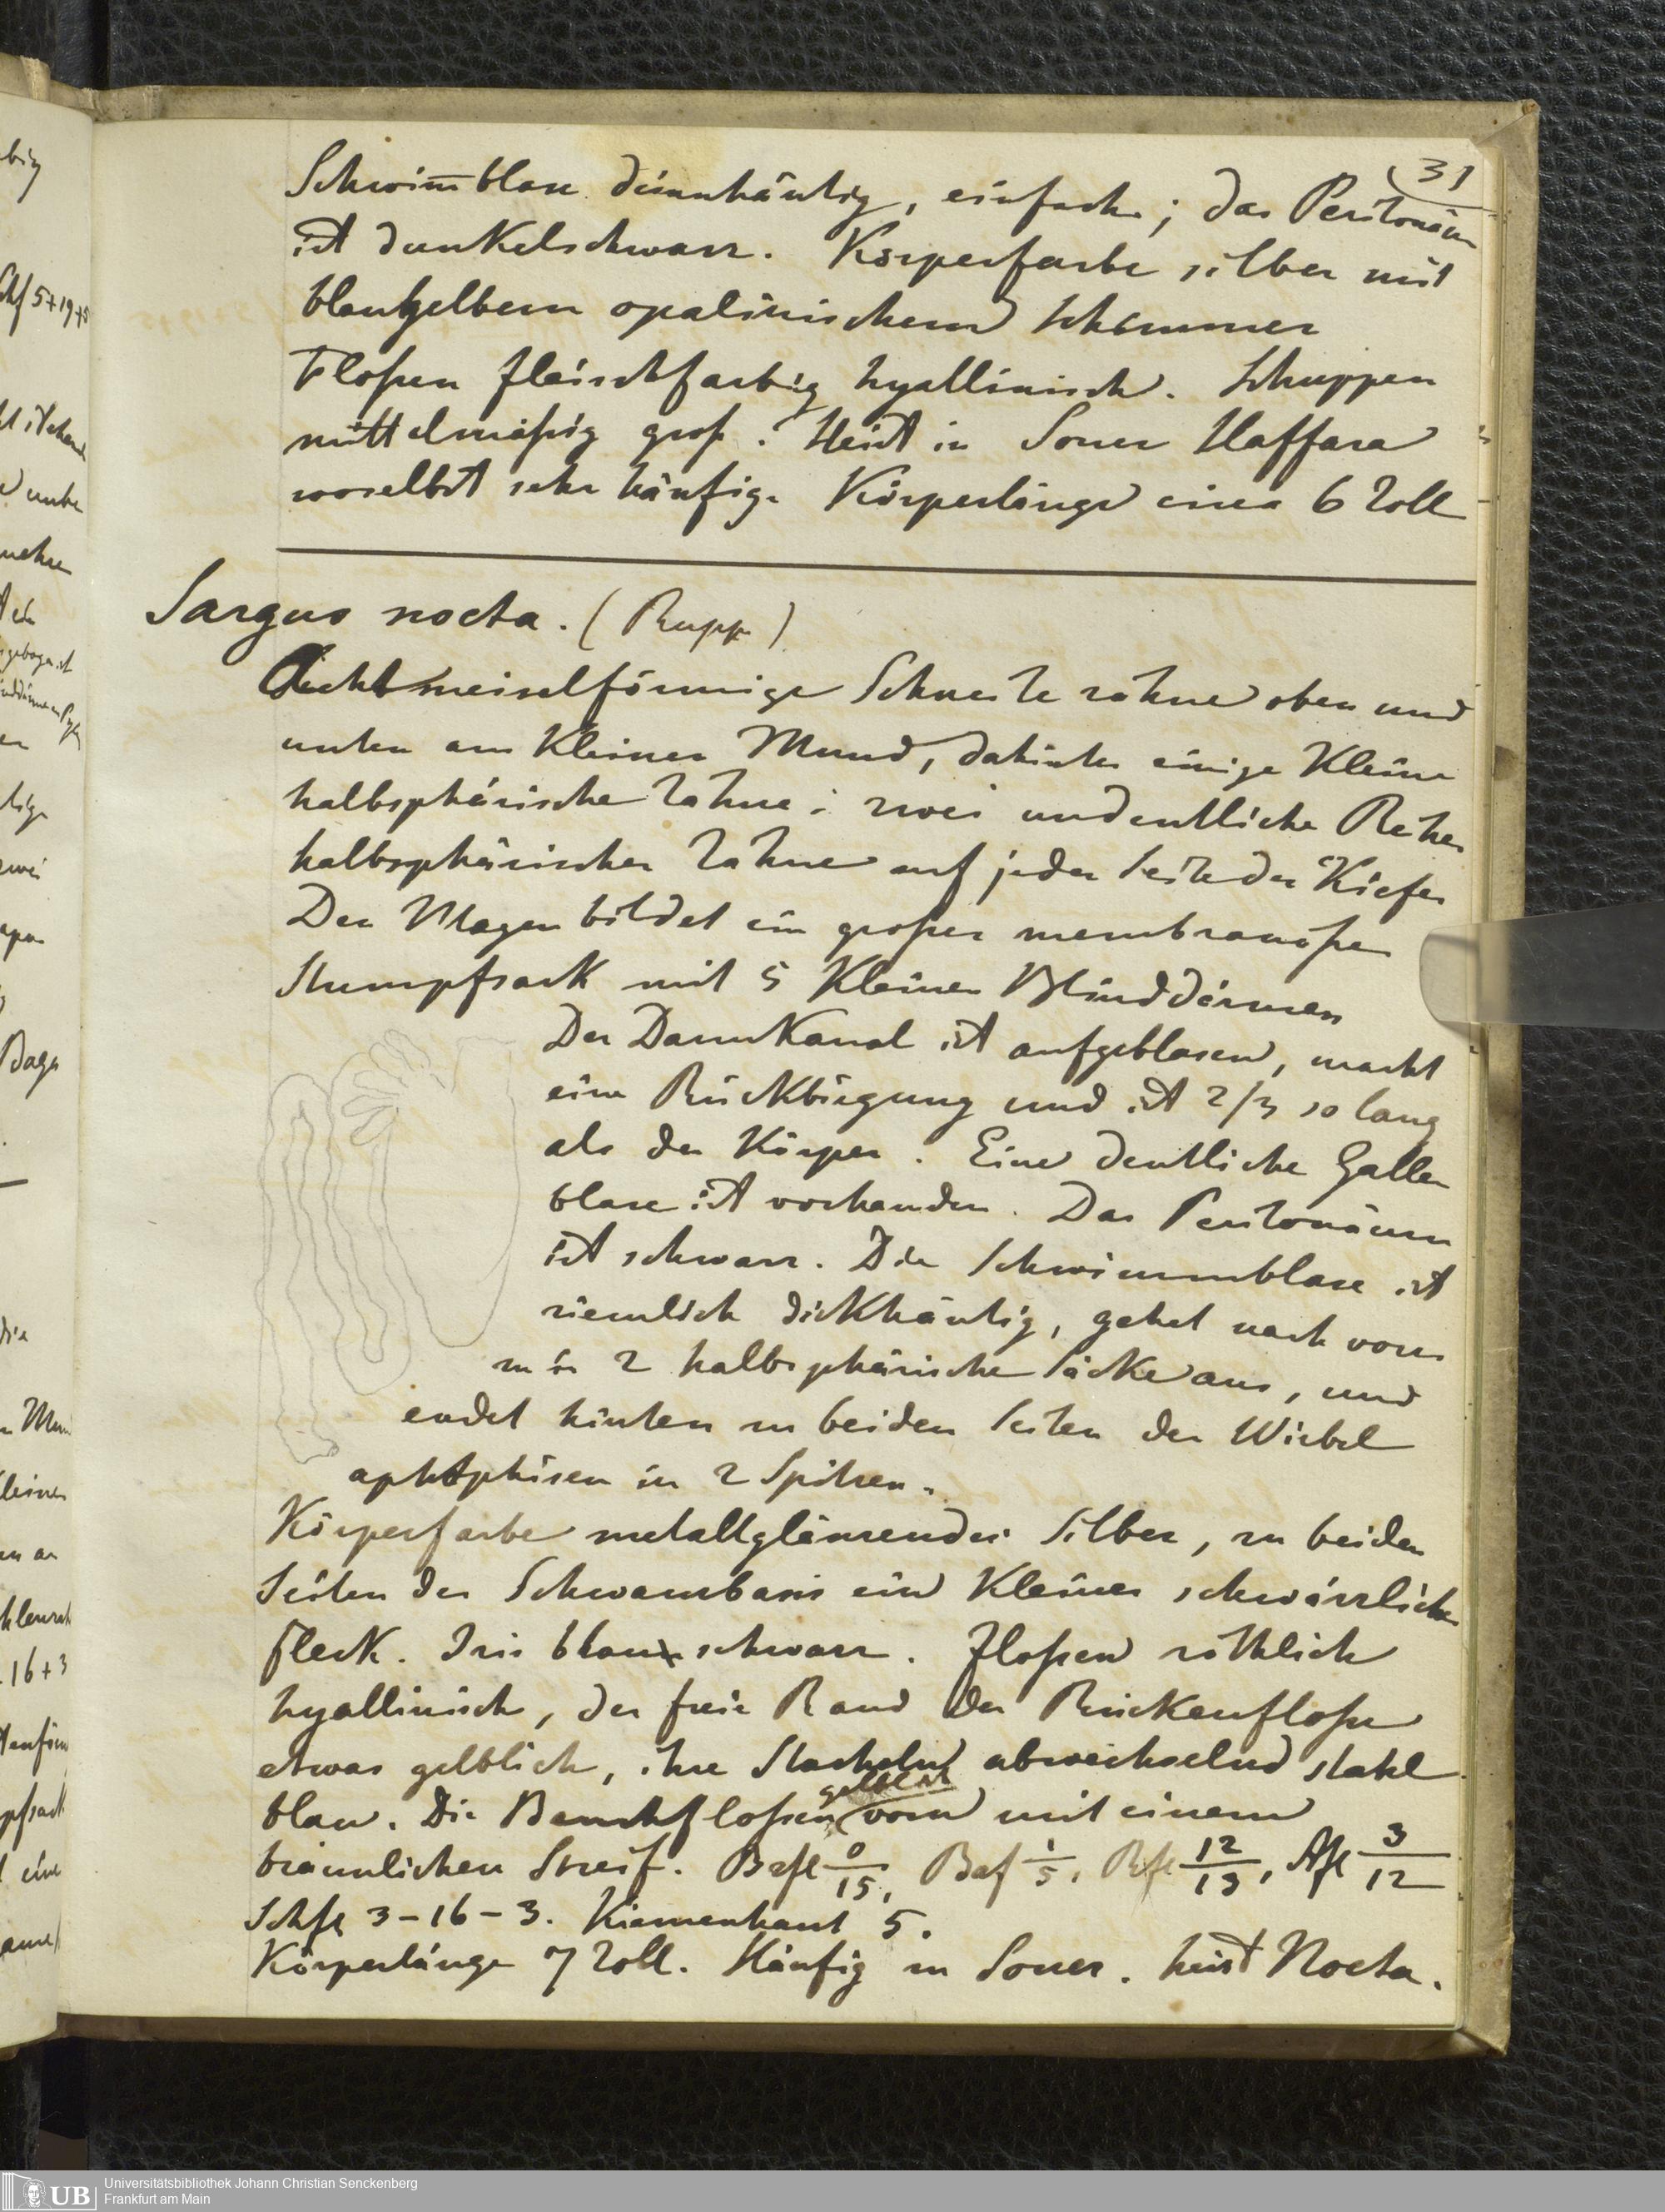 31
Schwim̅blase dünnhäutig, einfach; das Peritonäum
ist dunkelschwarz. Körperfarbe silber mit
blaugelbem opalinischem Schimmer
Floßen fleischfarbig hyallinisch. Schuppen
mittelmäßig groß. Heist in Souer Haffara
woselbst sehr häufig. Körperlänge eines 6 Zoll
Sargus nocta. (Rupp)
Acht meiselförmige Schneide zähne oben und
unten am kleinen Mund, dahinter einige kleine
halbsphärische Zähne; zwei undeutliche Reihen
halbsphärischer Zähne auf jeder Seite der Kiefer
Der Magen bildet ein großer membranoser
Stumpfsack mit 5 kleinen Blinddärmen
Der Darmkanal ist aufgeblasen, macht
eine Rückbiegung und ist 2/3 so lang
als der Körper. Eine deutliche Gallen
blase ist vorhanden. Das Peritonäum
ist schwarz. Die Schwimmblase ist
ziemlich dickhäutig, gehet nach vorn
zu in 2 halbsphärische Säcke aus, und
endet hinten zu beiden Seiten der Wirbel
aphophisen in 2 Spitzen.
Körperfarbe metallglänzendes Silber, zu beiden
Seiten der Schwanzbasis ein kleiner schwärzlicher
Fleck. Iris blauschwarz. Floßen röthlich
hyallinisch, der freie Rand der Rückenfloße
etwas gelblich, ihre Stacheln abwechselnd stahl
blau. Die Bauchfloßen gelblich vorn mit einem
bräunlichen Streif. Brfl 0/15, Baf 1/5, Rfl 12/13, Afl 3/12
Schfl 3-16-3. Kiemenhaut 5.
Körperlänge 7 Zoll. Häufig zu Souer. heist Nocta.
Schf 5+19+5
unbe
Baga
16+3
Universitätsbibliothek Johann Christian Senckenberg
Frankfurt am Main
UB